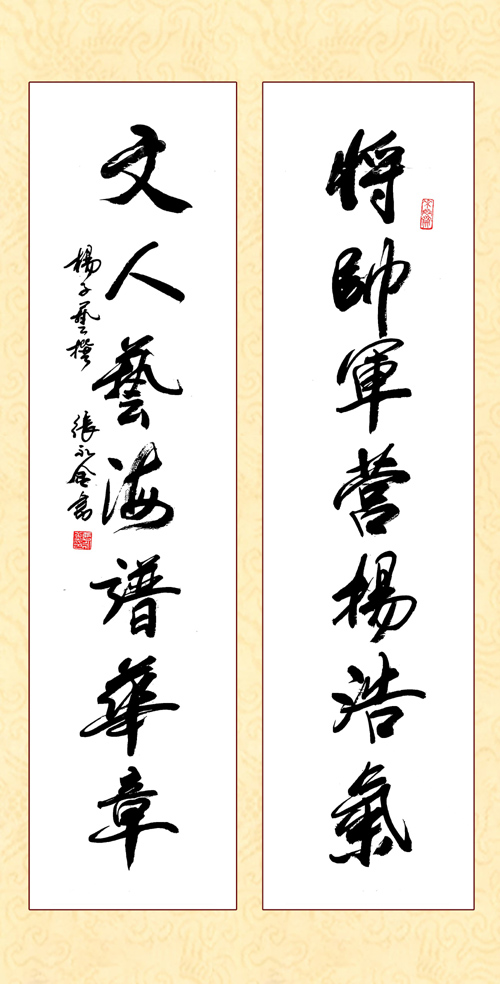 將帥軍营揚浩氣
文人藝海譜華章
楊子藝撰
張永書